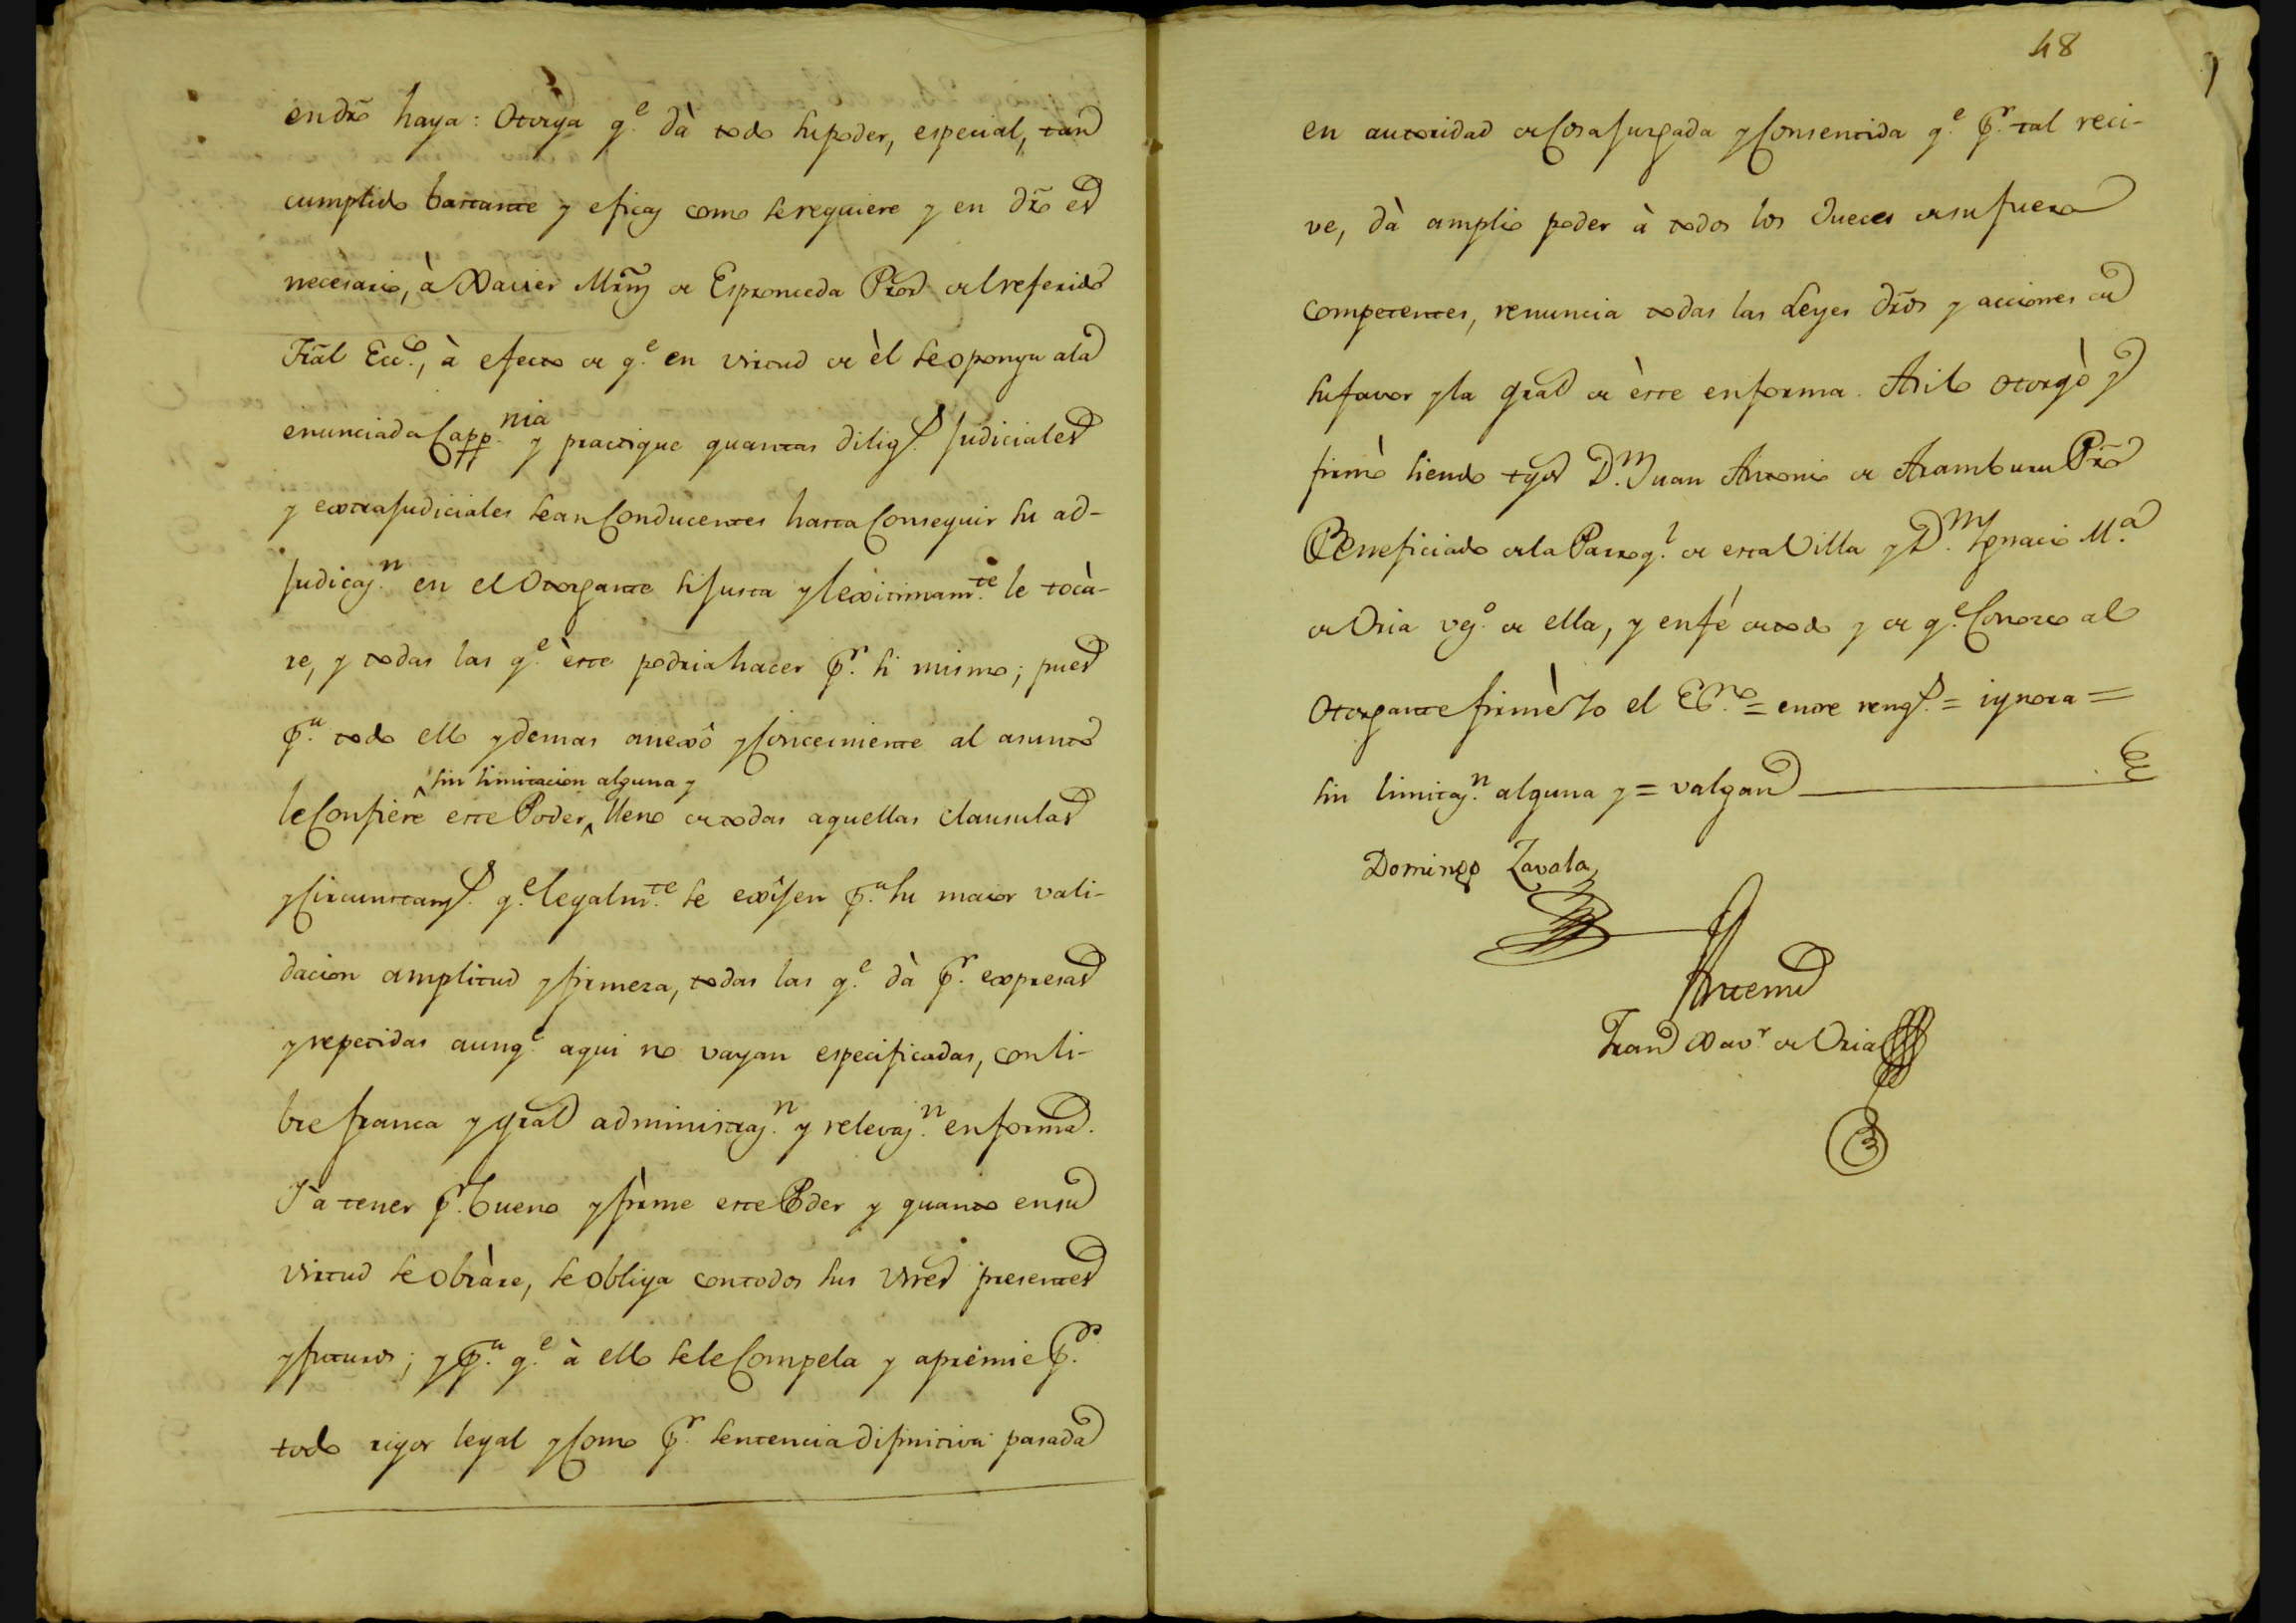 en dro haya: Otorga q.e dà todo su poder, especial, tan
cumplido bastante y eficaz como se requiere y en dro es
necesario, à Xavier Mrnz de Espronceda Pror del referido
Tral Ecc.o, à efecto de q.e en virtud de èl se oponga a la
enunciada Capp.nia y practique quantas dilig.s Judiciales
y extrajudiciales sean Conducentes hasta Conseguir su ad-
judicaz.n en el Otorgante si justa y lexitimam.te le tocà-
re, y todas las q.e èste podria hacer p.r si mismo; pues
p.a todo ello y demas anexô y Concerniente al asunto
sin limitacion alguna y
le Confiere este Poder, lleno de todas aquellas clausulas
y Circunstanz.s q.e legalm.te se exîjen p.a su maior vali-
dacion amplitud y firmeza, todas las q.e dà p.r expresas
y repetidas aunq.e aqui no vayan especificadas, con li-
bre franca y gral administraz.n y relevaz.n en forma.
Y à tener p.r bueno y firme este Poder y quanto en su
virtud se obràre, se obliga con todos sus vnes presentes
y futuros; y p.a q.e à ello se le Compela y apremie p.r
todo rigor legal y Como p.r sentencia difinitiva pasada
48
en autoridad de Cosa Juzgada y Consentida q.e p.r tal reci-
ve, dà amplio poder à todos los Jueces de su fuero
Competentes, renuncia todas las Leyes dros y acciones de
su favor y la gral de èste en forma. Asi lo otorgò y
firmò siendo tgos D.n Juan Antonio de Aramburu Pro
Beneficiado de la Parroq.l de esta Villa y D.n Ignacio M.a
de Oria vez.o de ella, y en fé de todo y de q.e Conozco al
Otorgante firmè Yo el Es.no = entre reng.s = ignora =
sin limitaz.n alguna y = valgan
Domingo Zavala
Antemi
Fran Xav.r de Oria